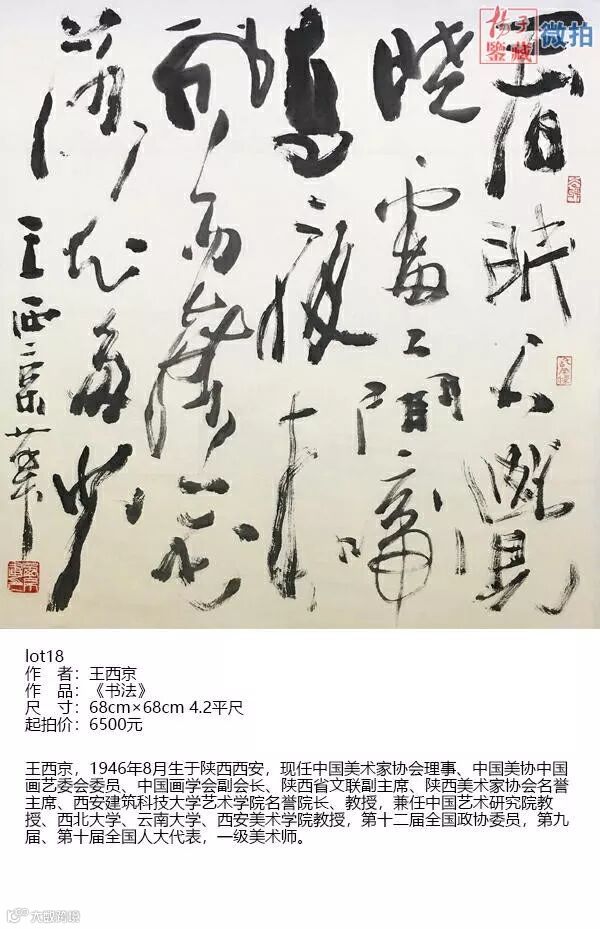 春眠不覺
曉處々聞啼
鳥夜来
風雨聲花
落知多少
王西京
揚子
鑒藏
微拍
lot18
作 者：王西京
作 品：《书法》
尺 寸：68cm×68cm 4.2平尺
起拍价：6500元
王西京，1946年8月生于陕西西安，现任中国美术家协会理事、中国美协中国
画艺委会委员、中国画学会副会长、陕西省文联副主席、陕西美术家协会名誉
主席、西安建筑科技大学艺术学院名誉院长、教授，兼任中国艺术研究院教
授、西北大学、云南大学、西安美术学院教授，第十二届全国政协委员，第九
届、第十届全国人大代表，一级美术师。